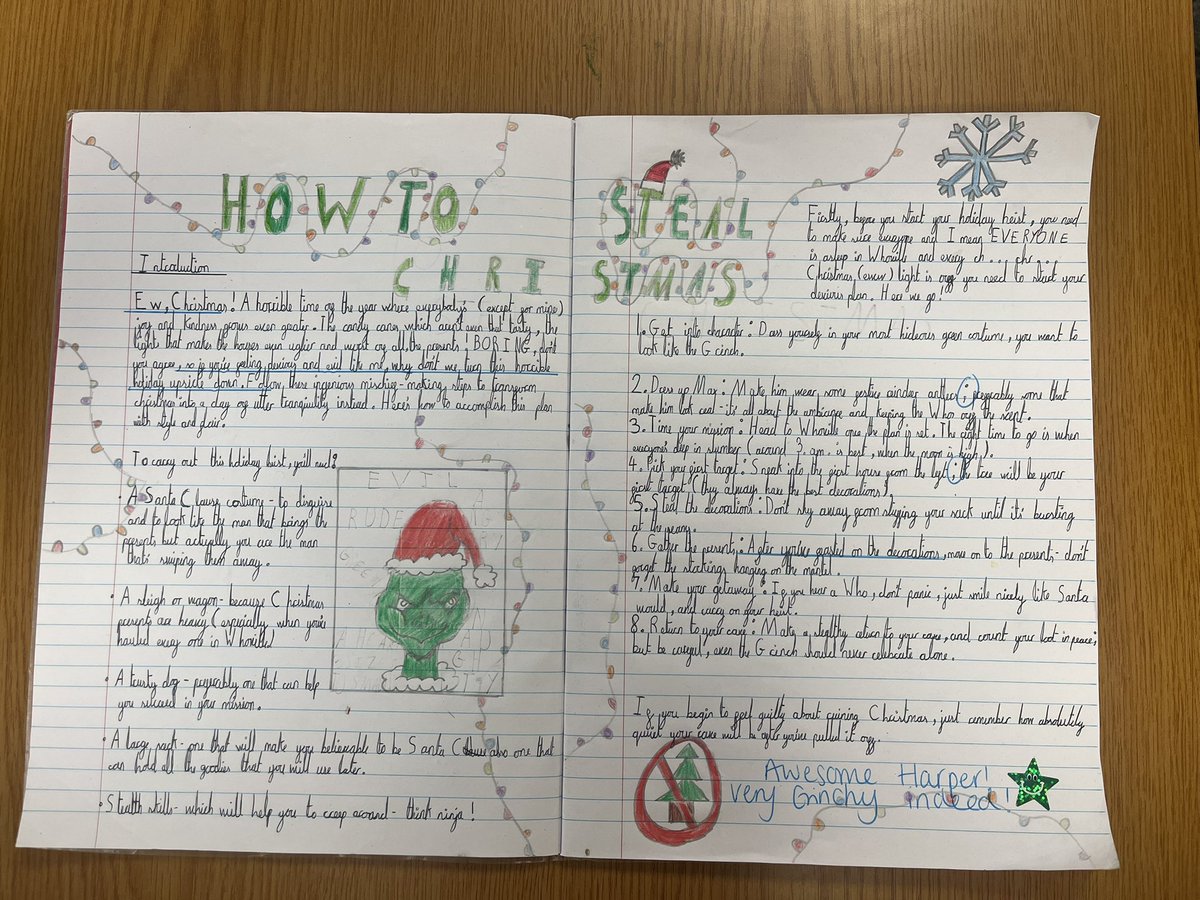 HOW TO STEAL
CHRISTMAS
Introduction
Ew, Christmas! A horrible time of the year where everybody's (except for mine)
joy and kindness grows even greater. The candy canes which aren't even that tasty, the
lights that makes the houses even uglier and worst of all, the presents! BORING, don't
you agree, so if you're feeling devious and evil like me, why don't we turn this horrible
holiday upside down. Follow these ingenious mischief-making steps to transform
christmas into a day of utter tranquility instead. Here's how to accomplish this plan
with style and flair.
To carry out this holiday heist, you'll need:
• A Santa Clause costume - to disguise
and to look like the man that brings the
presents but actually you are the man
that's swiping them away.
• A sleigh or wagon - because Christmas
presents are heavy (especially when you've
hauled every one in Whoville)
• A trusty dog - preferably one that can help
you succeed in your mission.
• A large sack - one that will make you believable to be Santa also one that
can hold all the goodies that you will use later.
• Stealth skills - which will help you to creep around - think ninja!
EVIL
RUDE
Firstly, before you start your holiday heist, you need
to make sure everyone and I mean EVERYONE
is asleep in Whoville and every ch... chr...
Christmas, (eww) light is off you need to start your
devious plan. Here we go!
1. Get into character: Dress yourself in your most hideous green costume, you want to
look like the Grinch.
2. Dress up Max: Make him wear some festive reindeer antlers; preferably some that
make him look real - it's all about the ambiance and keeping the Who off the scent.
3. Time your mission: Head to Whoville once the plan is set. The right time to go is when
everyone's deep in slumber (around 3 am is best, when the moon is high).
4. Pick your first target: Sneak into the first house from the left; the tree will be your
first target (they always have the best decorations)
5. Steal the decorations: Don't shy away from stuffing your sack until it's bursting
at the seams.
6. Gather the presents: After you've feasted on the decorations, move on to the presents - don't
forget the stockings hanging on the mantel.
7. Make your getaway: If you hear a Who, don't panic, just smile nicely like Santa
would, and carry on your heist.
8. Return to your cave: Make a stealthy return to your cave, and count your loot in peace;
but be careful, even the Grinch should never celebrate alone.
If you begin to feel guilty about ruining Christmas, just remember how absolutely
quiet your cave will be after you've pulled it off.
Awesome Harper!
Very Grinchy indeed!